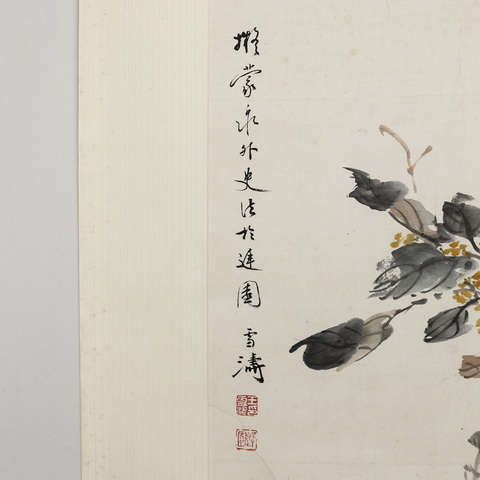 擬蒙泉外史法於遲園 雪濤